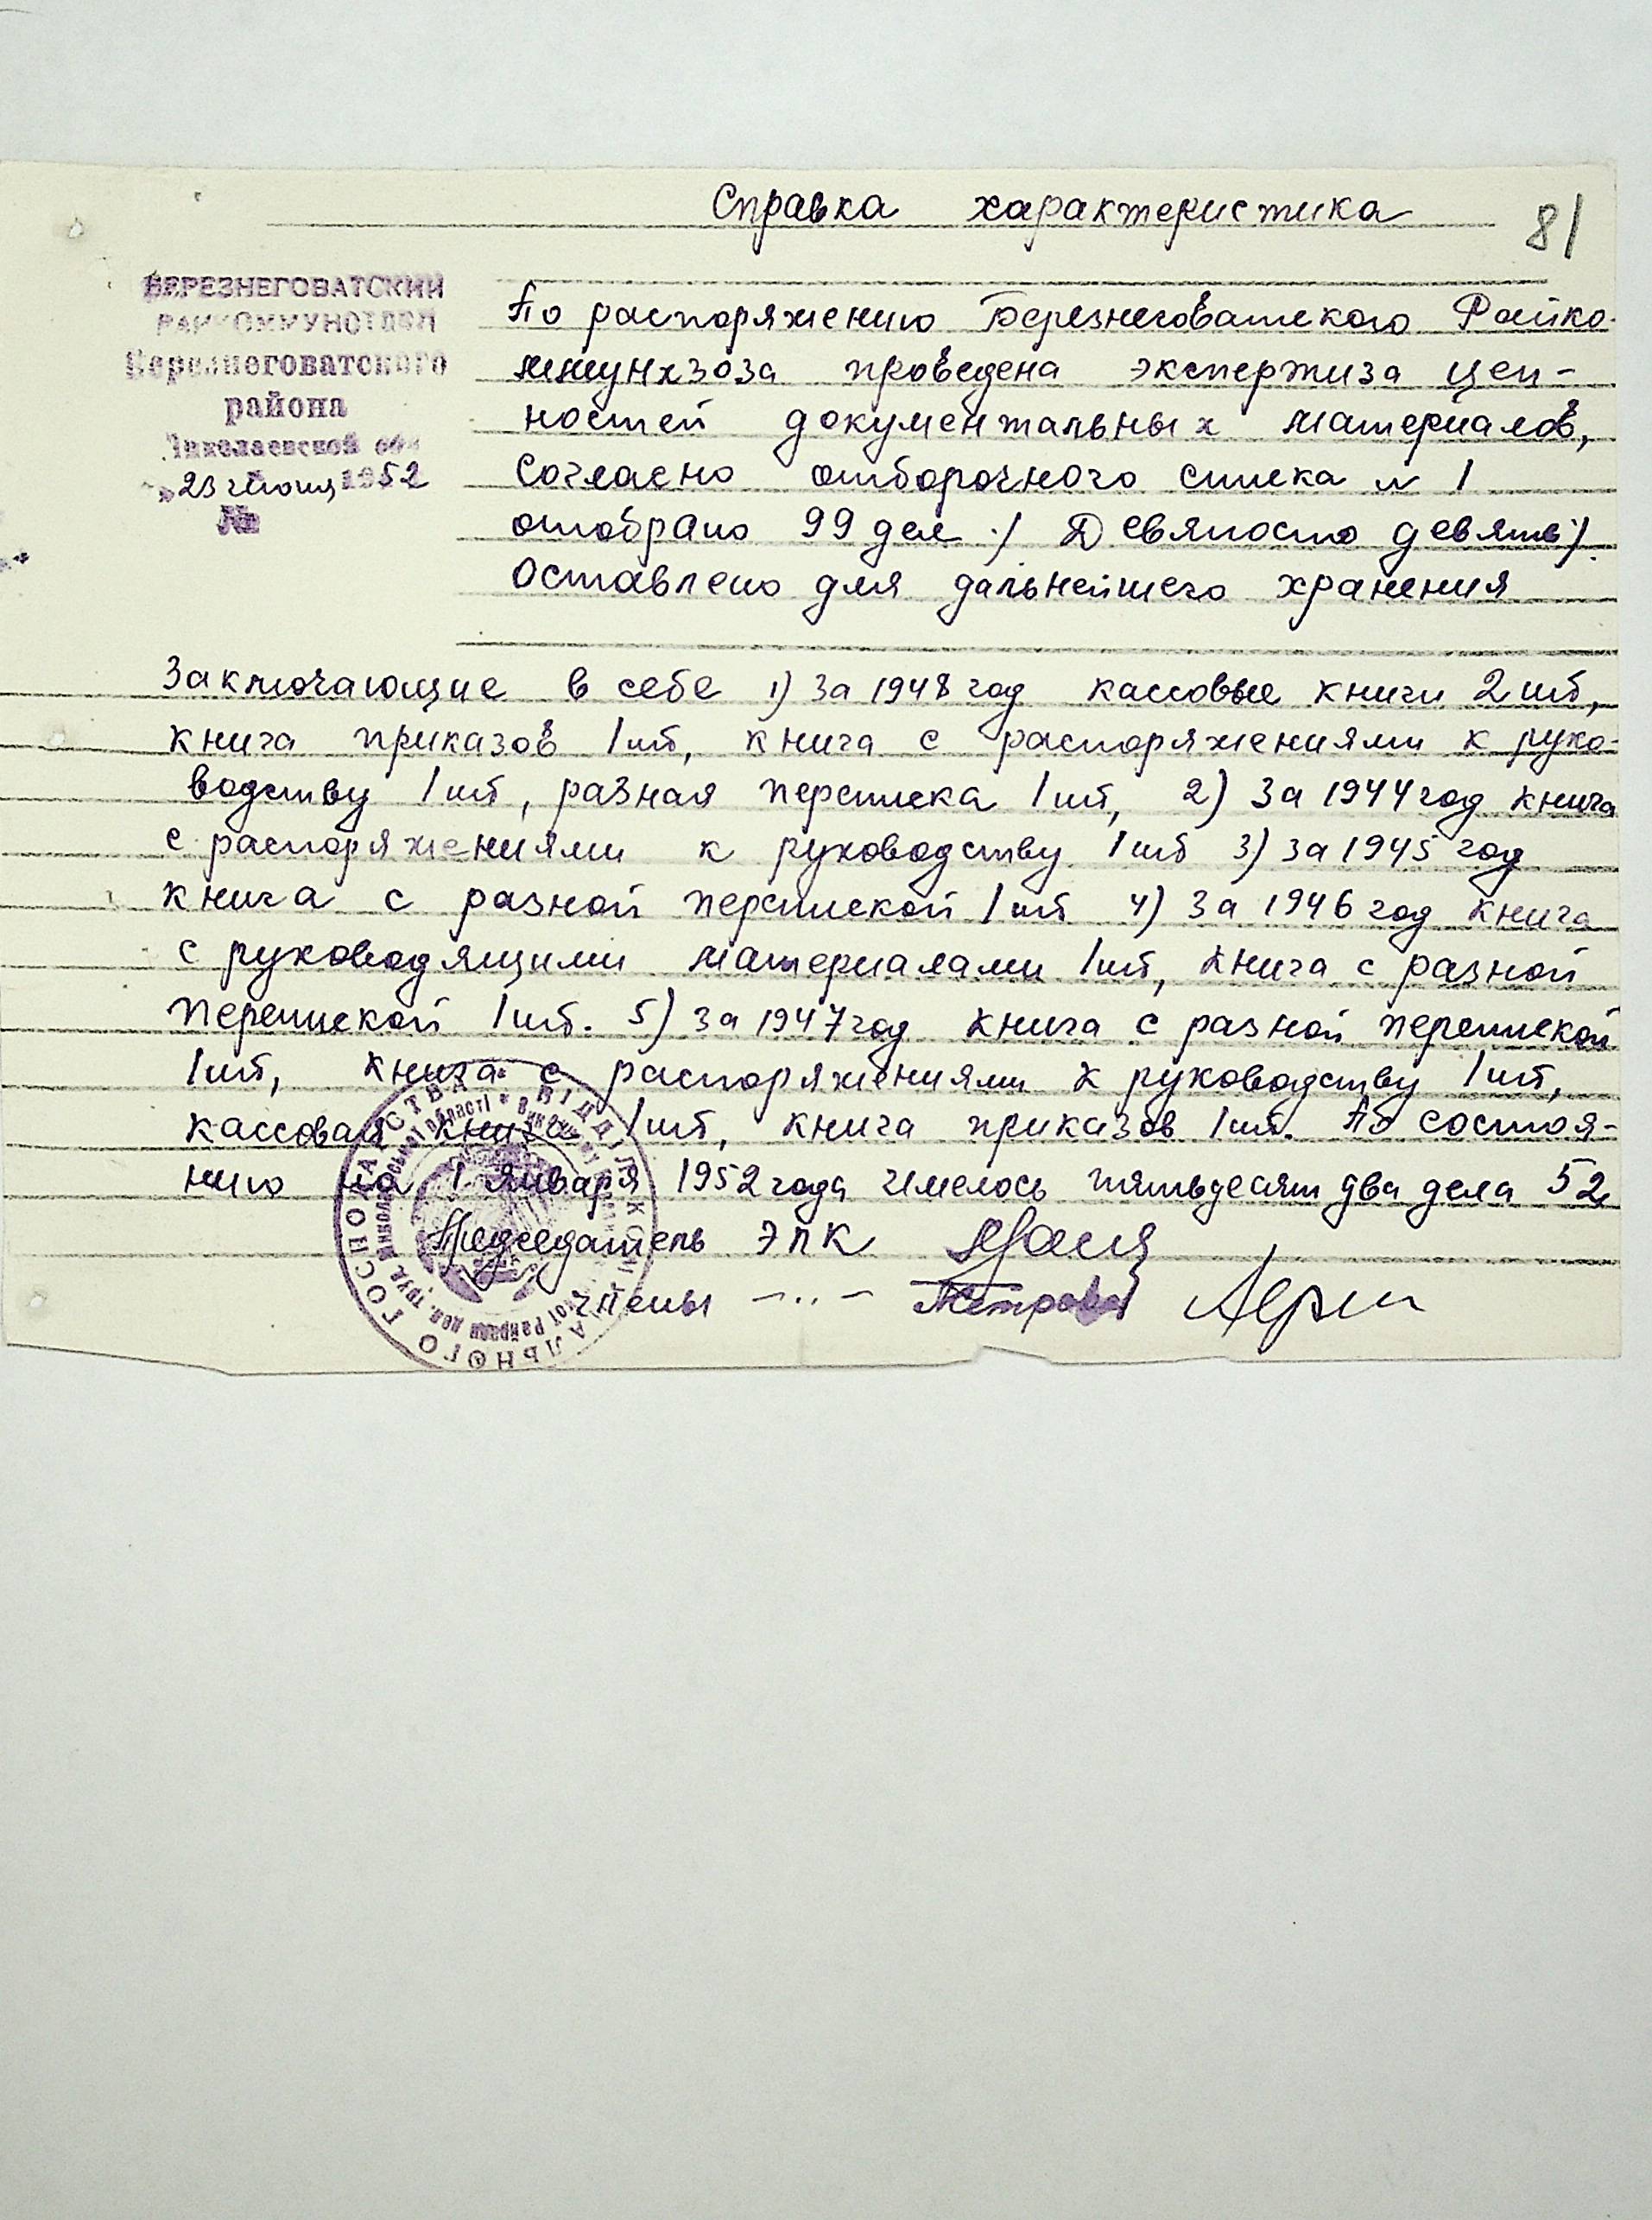 Справка характеристика
81
БЕРЕЗНЕГОВАТСКИЙ
РАЙКОММУНОТДЕЛ
Березнеговатского
района
Николаевской обл
"23 Июня 1952
№
По распоряжению Березнеговатского Райко-
ммунхзоза проведена экспертиза цен-
ностей документальных материалов,
Согласно отборочного списка № 1
отобрано 99 дел ·/ Девяносто девять ·/.
Оставлено для дальнейшего хранения
Заключающие в себе 1) За 1948 год кассовые книги 2 шт,
книга приказов 1 шт, книга с распоряжениями к руко-
водству 1 шт, разная переписка 1 шт, 2) За 1944 год книга
с распоряжениями к руководству 1 шт 3) За 1945 год
книга с разной перепиской 1 шт 4) За 1946 год книга
с руководящими материалами 1 шт, книга с разной
перепиской 1 шт. 5) За 1947 год книга с разной перепиской
1 шт, книга с распоряжениями к руководству 1 шт,
кассовая книга 1 шт, книга приказов 1 шт. По состоя-
нию на 1 Января 1952 года Имелось пятьдесят два дела 52
Председатель ЭПК
члены —··— Петрова
ВІДДІЛ КОМУНАЛЬНОГО ГОСПОДАРСТВА